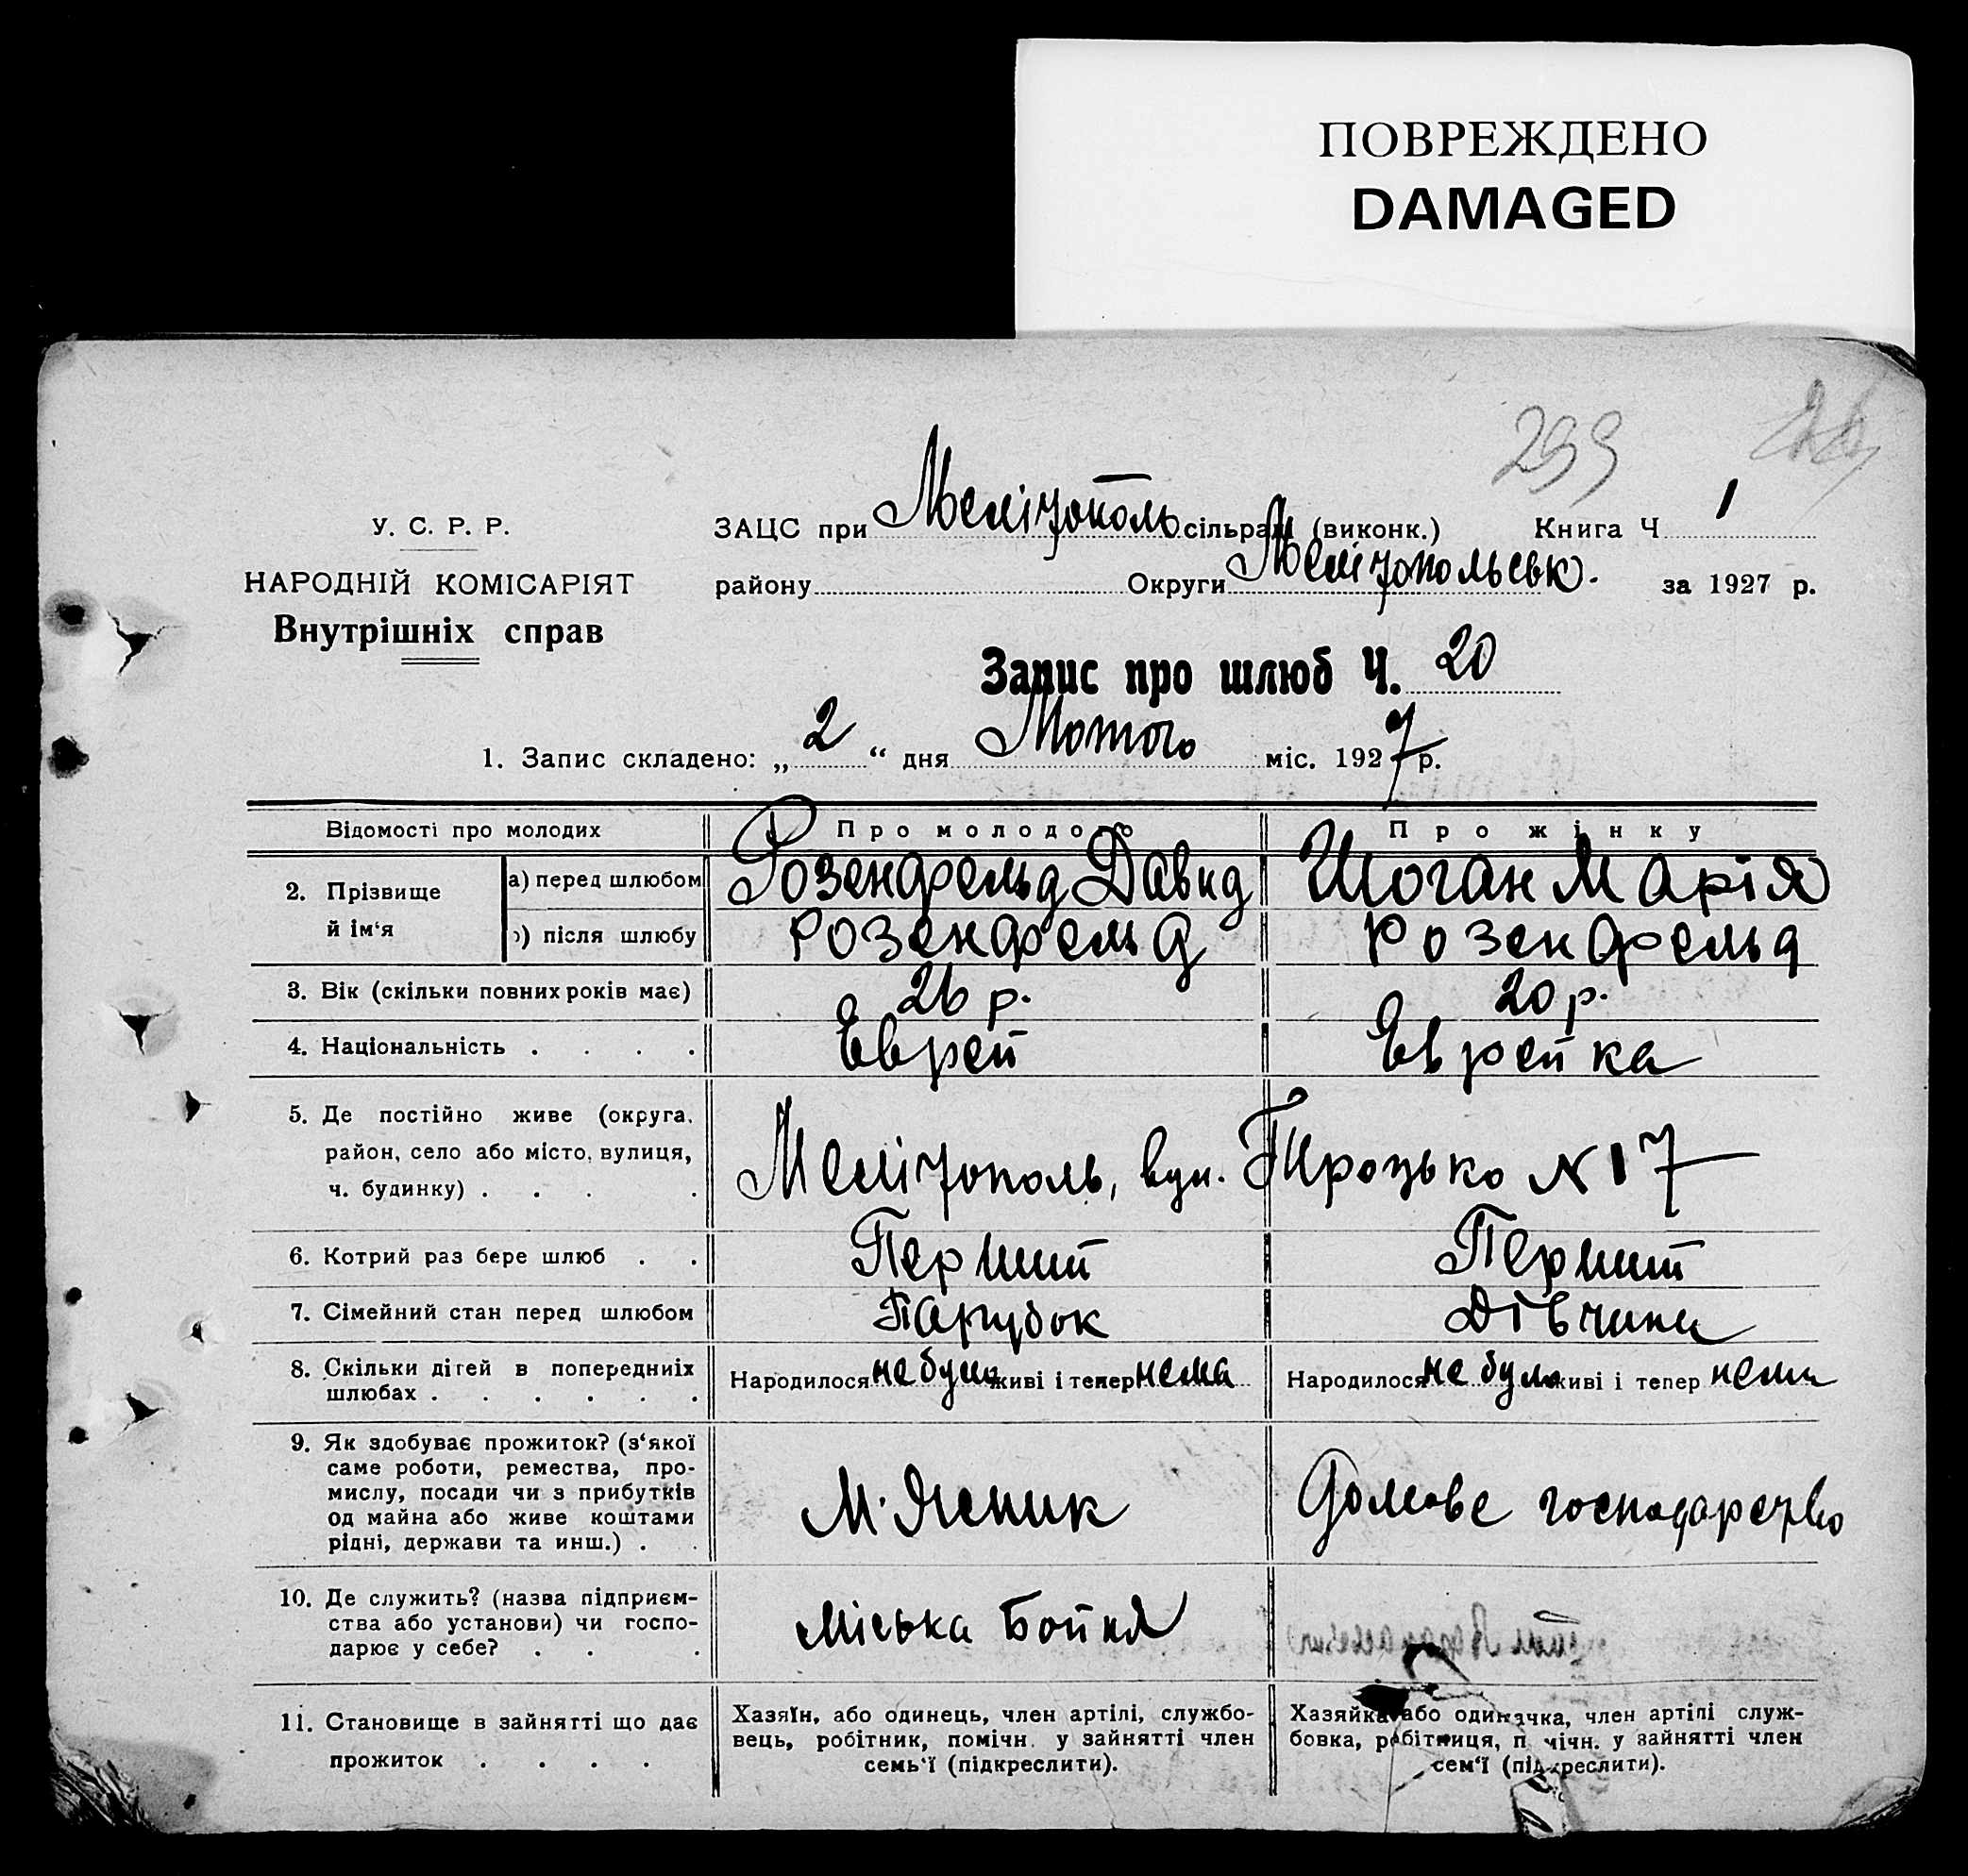 ПОВРЕЖДЕНО
DAMAGED
299
У. С. Р. Р.
НАРОДНІЙ КОМІСАРІЯТ
Внутрішніх справ
ЗАЦС при Мелітополь сільраді (виконк.) Книга Ч 1
району Округи Мелітопольськ. за 1927 р.
Запис про шлюб Ч. 20
1. Запис складено: „ 2 “ дня Лютого міс. 1927 р.
Відомості про молодих Про молодого Про жінку
2. Прізвище й ім‘я а) перед шлюбом Розенфельд Давид Шоган Марія
б) після шлюбу Розенфельд Розенфельд
3. Вік (скільки повних років має) 26 р. 20 р.
4. Національність . . . . Еврей Еврейка
5. Де постійно живе (округа,
район, село або місто, вулиця,
ч. будинку) . . . . Мелітополь, вул. Троцько № 17
6. Котрий раз бере шлюб . . Перший Перший
7. Сімейний стан перед шлюбом Парубок Дівчина
8. Скільки дітей в попередниіх
шлюбах . . . . . . Народилося не було живі і тепер нема Народилося не було живі і тепер нема
9. Як здобуває прожиток? (з‘якої
саме роботи, ремества, про-
мислу, посади чи з прибутків
од майна або живе коштами
рідні, держави та инш.) . . М'ясник Домове господарство
10. Де служить? (назва підприєм-
ства або установи) чи госпо-
дарює у себе? . . . Міська Бойня
11. Становище в зайнятті що дає
прожиток . . . .
Хазяїн, або одинець, член артілі, службо-
вець, робітник, помічн. у зайнятті член
семь‘ї (підкреслити).
Хазяйка або одиначка, член артілі служ-
бовка, робітниця, помічн. у зайнятті член
сем‘ї (підкреслити).